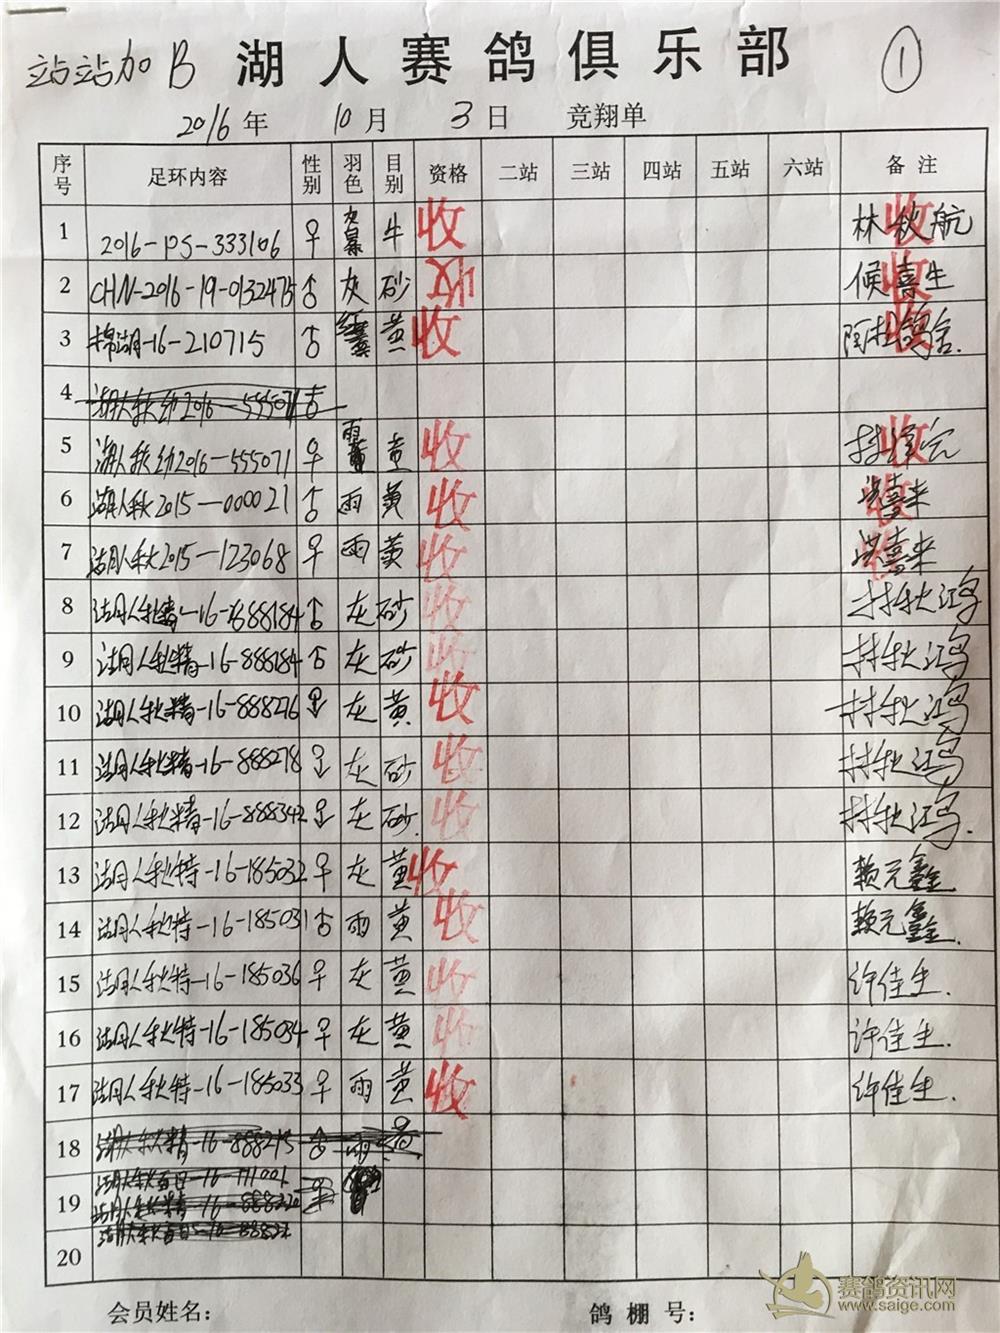 站站加 B 湖人赛鸽俱乐部 ①
2016 年 10 月 3 日 竞翔单
序号 足环内容 性别 羽色 目别 资格 二站 三站 四站 五站 六站 备注
1 2016-PS-333106 ♀ 灰 牛 收 林秋航 收
2 CHN-2016-19-0132475 ♂ 灰 砂 候喜生 收
3 棉湖-16-210715 ♂ 黄 收 收
4 湖人秋幼2016-555071
5 湖人秋幼2016-555071 ♀ 雨 收 收
6 湖人秋2015-000021 ♂ 雨 黄 收 洪喜来 收
7 湖人秋2015-123068 ♀ 雨 黄 收 洪喜来 收
8 湖人秋精-16-888184 ♂ 灰 砂 收 林秋鸿
9 湖人秋精-16-888184 ♂ 灰 砂 收 林秋鸿
10 湖人秋精-16-888276 灰 黄 收 林秋鸿
11 湖人秋精-16-888278 灰 砂 收 林秋鸿
12 湖人秋精-16-888342 灰 砂. 收 林秋鸿.
13 湖人秋特-16-185032 ♀ 灰 黄 收 赖元鑫
14 湖人秋特-16-185031 ♂ 雨 黄 收 赖元鑫.
15 湖人秋特-16-185036 ♀ 灰 黄 收 许佳生.
16 湖人秋特-16-185034 ♀ 灰 黄 收 许佳生.
17 湖人秋特-16-185033 ♀ 雨 黄 收 许佳生.
18 湖人秋精-16-888215 雨
19
20
会员姓名： 鸽棚号：
赛鸽资讯网
www.saige.com